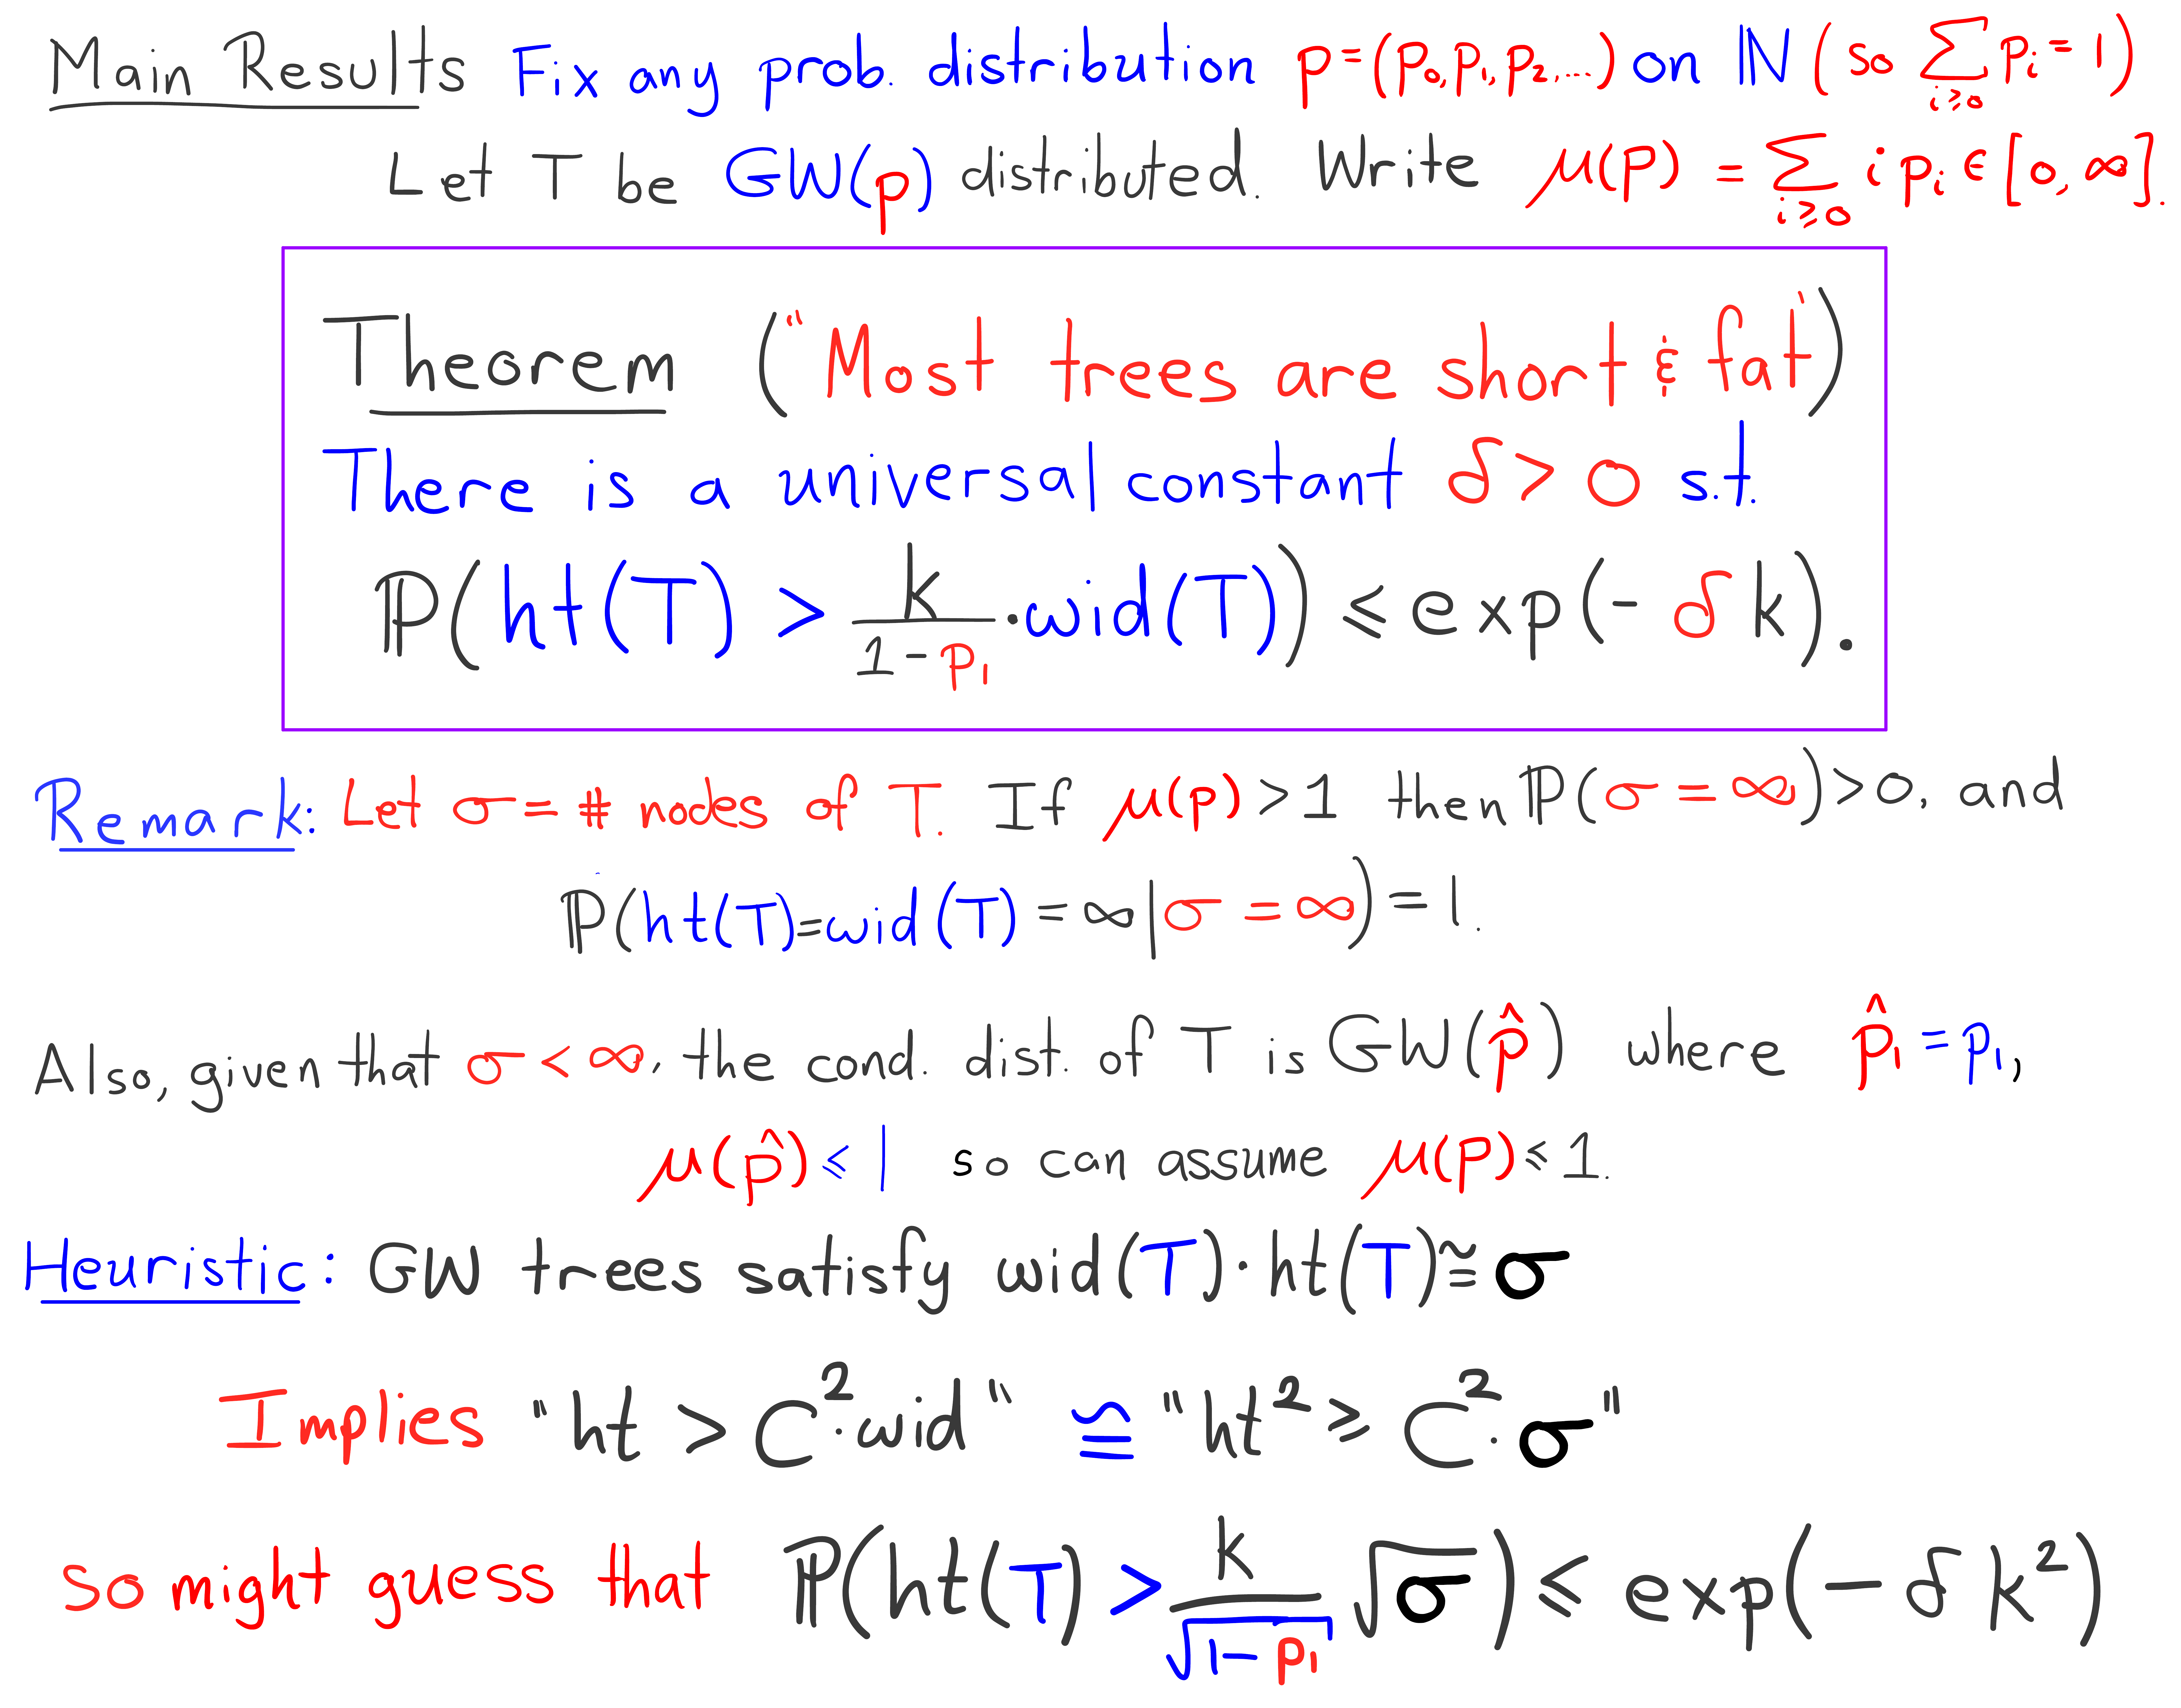 Main Results Fix any prob. distribution p=(p₀,p₁,p₂,...) on ℕ (so ∑_{i≥0} p_i = 1)
Let T be GW(p) distributed. Write μ(p) = ∑_{i≥0} i p_i ∈ [0,∞].
Theorem ("Most trees are short & fat")
There is a universal constant δ > 0 s.t.
ℙ(ht(T) > k/(1-p₁) · wid(T)) ≤ exp(-δk).
Remark: Let σ = # nodes of T. If μ(p) > 1 then ℙ(σ = ∞) > 0, and
ℙ(ht(T) = wid(T) = ∞ | σ = ∞) = 1.
Also, given that σ < ∞, the cond. dist. of T is GW(p̂) where p̂₁ = p₁,
μ(p̂) ≤ 1 so can assume μ(p) ≤ 1.
Heuristic: GW trees satisfy wid(T)·ht(T) ≊ σ
Implies "ht > C²·wid" ≅ "ht² ≥ C²·σ"
so might guess that ℙ(ht(T) > k/√(1-p₁) √σ) ≤ exp(-δk²)